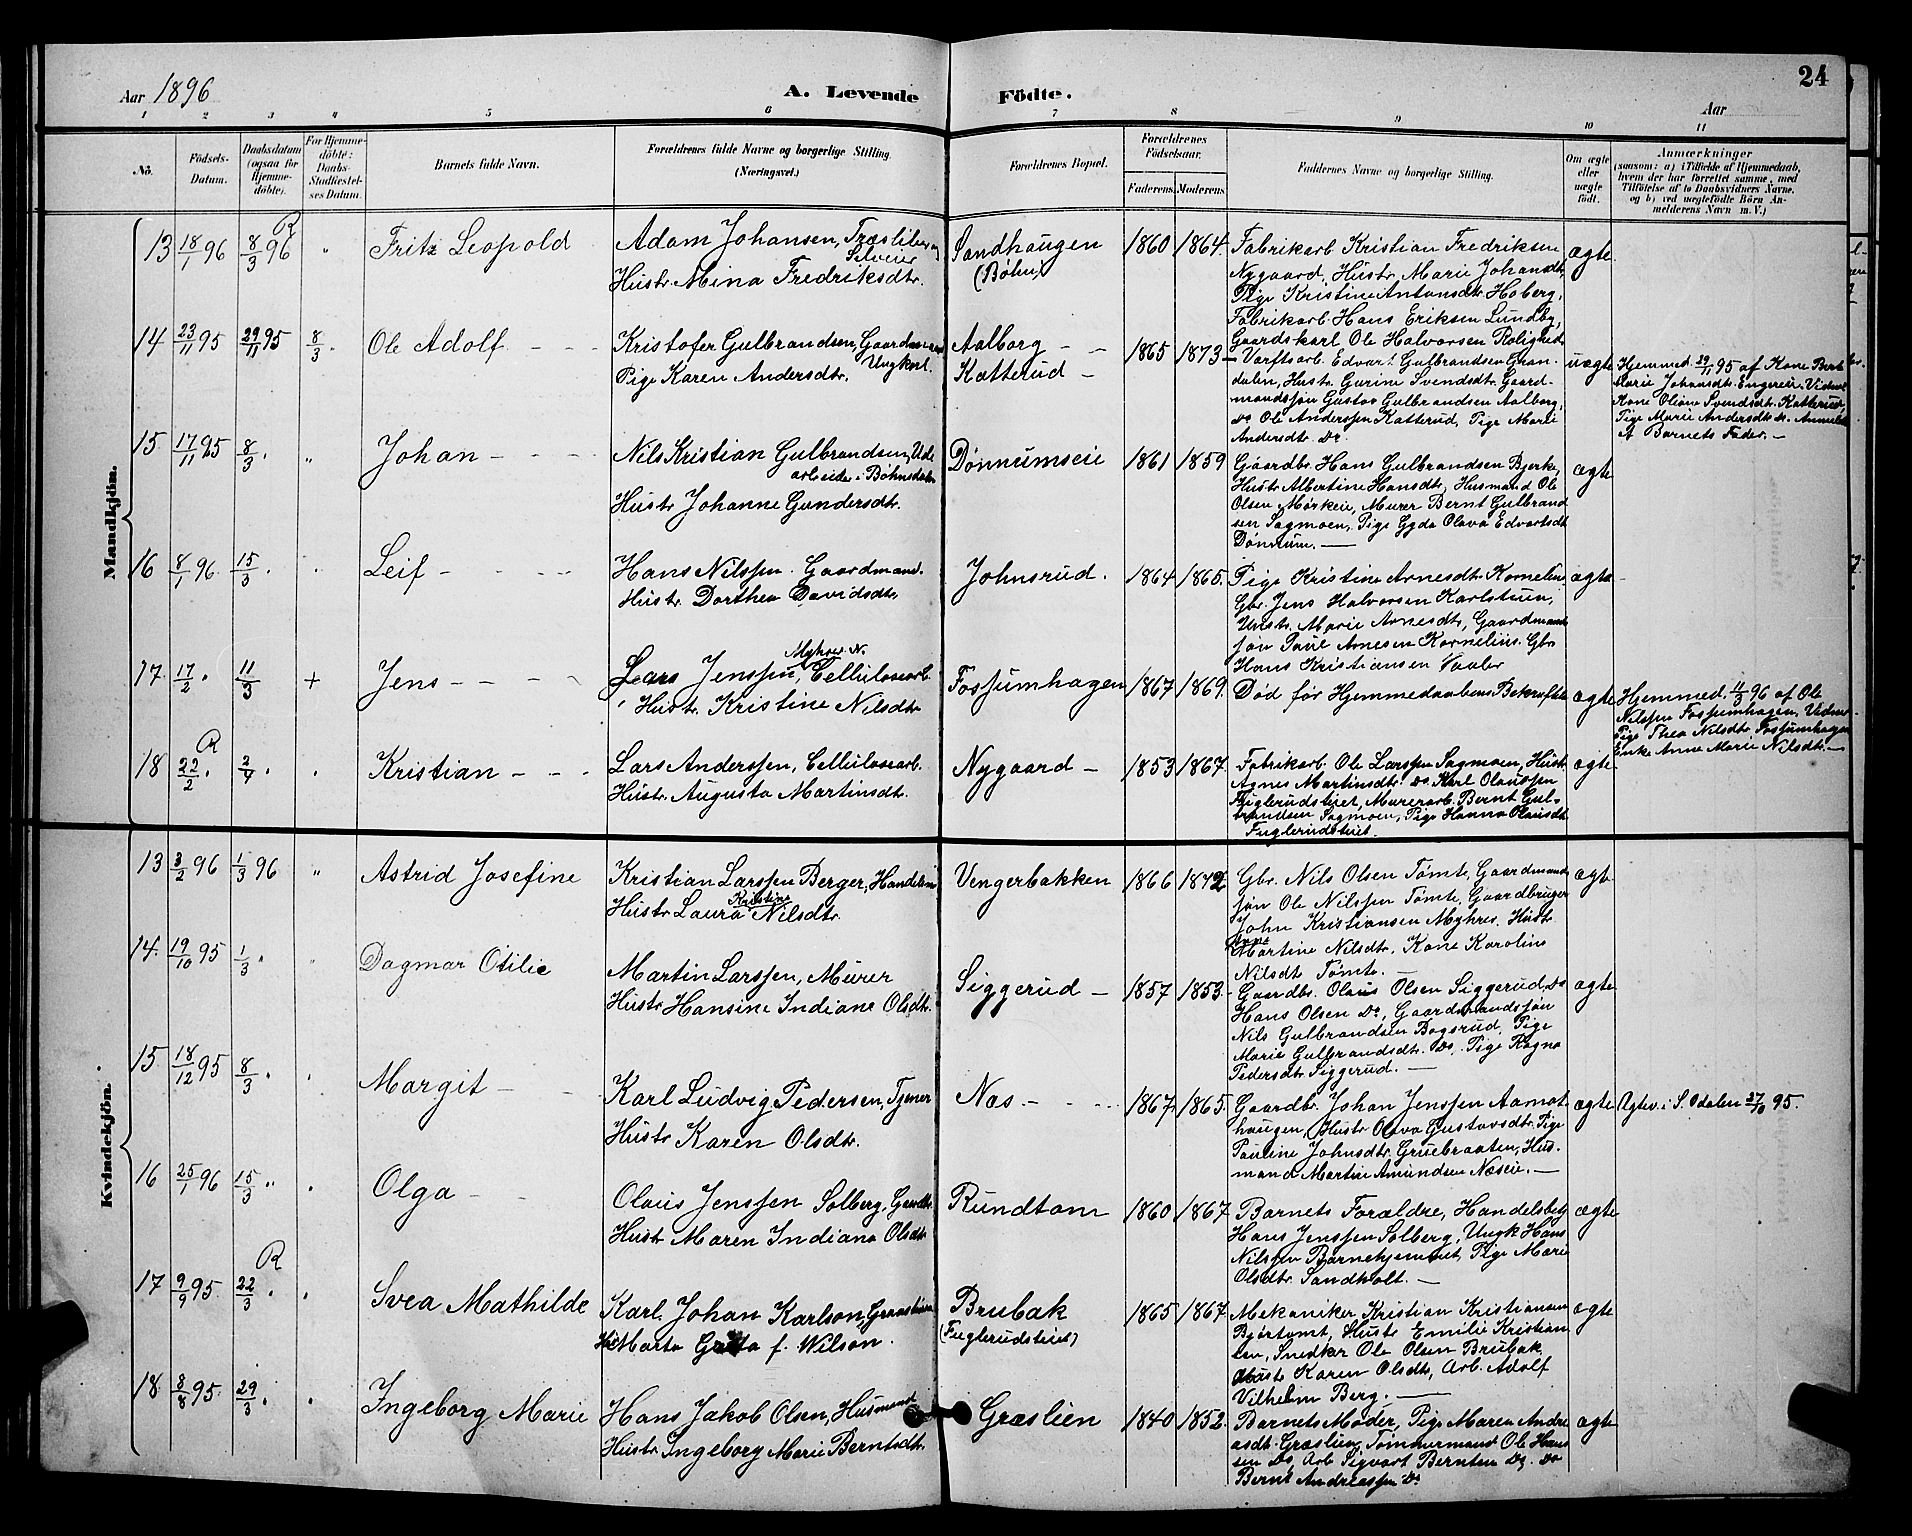 24
Aar 1896 A. Levende Födte. Aar
1 2 3 4 5 6 7 8 9 10 11
No.
Födsels-Datum.
Daabsdatum (ogsaa for Hjemme-döbte).
For Hjemme-döbte: Daabs-Stadfæstel-ses Datum.
Barnets fulde Navn.
Forældrenes fulde Navne og borgerlige Stilling.
(Næringsvei.)
Forældrenes Bopæl.
Forældrenes Födselsaar.
Faderens. Moderens.
Faddernes Navne og borgerlige Stilling.
Om ægte eller uægte födt.
Anmærkninger
(saasom: a) i Tilfælde af Hjemmedaab,
hvem der har forrettet samme, med
Tilföielse af to Daabsvidners Navne,
og b) ved uægtefödte Börn An-
melderens Navn m. V.)
Mandkjön.
13 18/1 96 R 8/3 96 " Fritz Leopold
Adam Johansen, Træsliber
Hustr. Mina Fredriksdtr.
Sandhaugen
(Bøhn)
1860 1864.
Fabrikarb. Kristian Fredriksen
Nygaard, Hustr. Marie Johansdt,
Pige Kristine Antonsdtr Hoberg,
Fabrikarb. Hans Eriksen Lundby,
Gaardskarl Ole Halvorsen Rolighed
ægte
14 23/11 95 29/11 95 8/3 Ole Adolf
Kristofer Gulbrandsen, Ungkarl.
Pige Karen Andersdtr.
Aalborg
Katterud
1865 1873
Værftsarb. Edvart Gulbrandsen Gran-
dalen, Hustr. Gurine Svendsdtr. Gaard-
mandssøn Gustav Gulbrandsen Aalborg,
Do Ole Anderssen Katterud, Pige Marie
Andersdtr. Do.
uægte
Hjemmed. 29/11 95 af Kone Berte
Marie Johansdtr. Engereie. Vidner
Kone Oliane Svendsdtr. Katterud,
Pige Marie Andersdtr. Do. Anmeldt
af Barnets Fader.
15. 17/11 95 8/3 " Johan
Nils Kristian Gulbrandsen,
arbeider i Bøhnsdalen
Hustr Johanne Gundersdtr.
Dønnumseie
1861 1859
Gaardbr. Hans Gulbrandsen Bjerke,
Hustr Albertine Hansdtr, Husmand Ole
Olsen Mørkeie, Murer Bernt Gulbrand
sen Sagmoen, Pige Gyda Olava Edvartsdt
Dønnum.
ægte
16 8/1 96 15/3 Leif
Hans Nilssen. Gaardmand.
Hustr. Dorthea Davidsdtr.
Johnsrud.
1864 1865.
Pige Kristine Arnesdtr. Kornelius
Gbr. Jens Halvorsen Karlstuen,
Hustr. Marie Arnesdtr, Gaardmand
søn Paul Arnesen Kornelius. Gbr.
Hans Kristiansen Vaaler
ægte
17. 17/2 11/3 + Jens
Lars Jenssen, Myhrer N. Cellulosearb.
Hustr. Kristine Nilsdtr
Fossumhagen
1867 1869.
Død før Hjemmedaabens Bekræftelse
ægte
Hjemmed. 11/3 96 af Ole
Nilssen Fossumhagen, Vidner
Pige Thea Nilsdtr. Fossumhagen
Enke Anne Marie Nilsdtr.
18 R 22/2 2/4 Kristian
Lars Anderssen, Cellulosearb.
Hustr. Augusta Martinsdtr.
Nygaard
1853 1867.
Fabrikarb. Ole Larssen Sagmoen, Hustr
Agnes Martinsdtr. Do Karl Olaussen
Fuglerudstuet, Murerarb. Bernt Gul-
brandsen Sagmoen, Pige Hanna Olausdt
Fuglerudstuet.
ægte
Kvindekjön.
13 3/2 96 1/3 96 " Astrid Josefine
Kristian Larssen Berger, Handelsm
Hustr. Laura Kristine Nilsdtr.
Vengerbakken
1866 1872
Gbr. Nils Olsen Tømte, Gaardmands
søn Ole Nilssen Tømte, Gaardbruger
John Kristiansen Myhrer, Hustr
Anne Martine Nilsdtr, Kone Karoline
Nilsdt Tømte.
ægte
14. 19/10 95 1/3 Dagmar Otilie
Martin Larssen, Murer
Hustr Hansine Indiane Olsdtr.
Siggerud
1857 1853.
Gaardbr. Olaus Olsen Siggerud, Do
Hans Olsen Do, Gaardmandssøn
Nils Gulbrandsen Bogsrud, Pige
Marie Gulbrandsdtr. Do, Pige Ragna
Pedersdtr Siggerud.
ægte
15 18/12 95 8/3 Margit
Karl Ludvig Pedersen, Tjener
Hustr Karen Olsdtr.
Næs
1867 1865.
Gaardbr. Johan Jenssen Aamot
haugen, Hustr Olava Gustavsdtr. Pige
Pauline Johnsdtr. Gruebraaten, Hus-
mand Martin Amundsen Næseie.
ægte
Ægtev. i S. Odalen 27/10 95.
16 25/1 96 15/3 Olga
Olaus Jenssen Solberg, Gaardbr.
Hustr Maren Indiana Olsdtr
Rundtom
1860 1867
Barnets Forældre, Handelsbetj
Hans Jenssen Solberg, Ungk Hans
Nilssen Barnehjemmet, Pige Marie
Olsdtr. Sandholt.
ægte
17 9/9 95. R 22/3 Svea Mathilde
Karl Johan Karlson,
H. Marta Greta f. Wilson.
Brubak
(Fuglerudstuet)
1865 1867
Mekaniker Kristian Kristiansen
Bjørtomt, Hustr Emilie Kristian
sen, Snedker Ole Olsen Brubak,
Hustr Karen Olsdtr, Arb. Adolf
Vilhelm Berg.
ægte
18 8/8 95. 29/3 Ingeborg Marie
Hans Jakob Olsen, Husmand
Hustr. Ingeborg Marie Berntsdtr.
Græslien
1840 1852.
Barnets Moder, Pige Maren Andre
asdt. Græslien, Tømmermand Ole Han
sen Do, Arb Sigvart Berntsen Do. Do
Bernt Andreassen Do
ægte